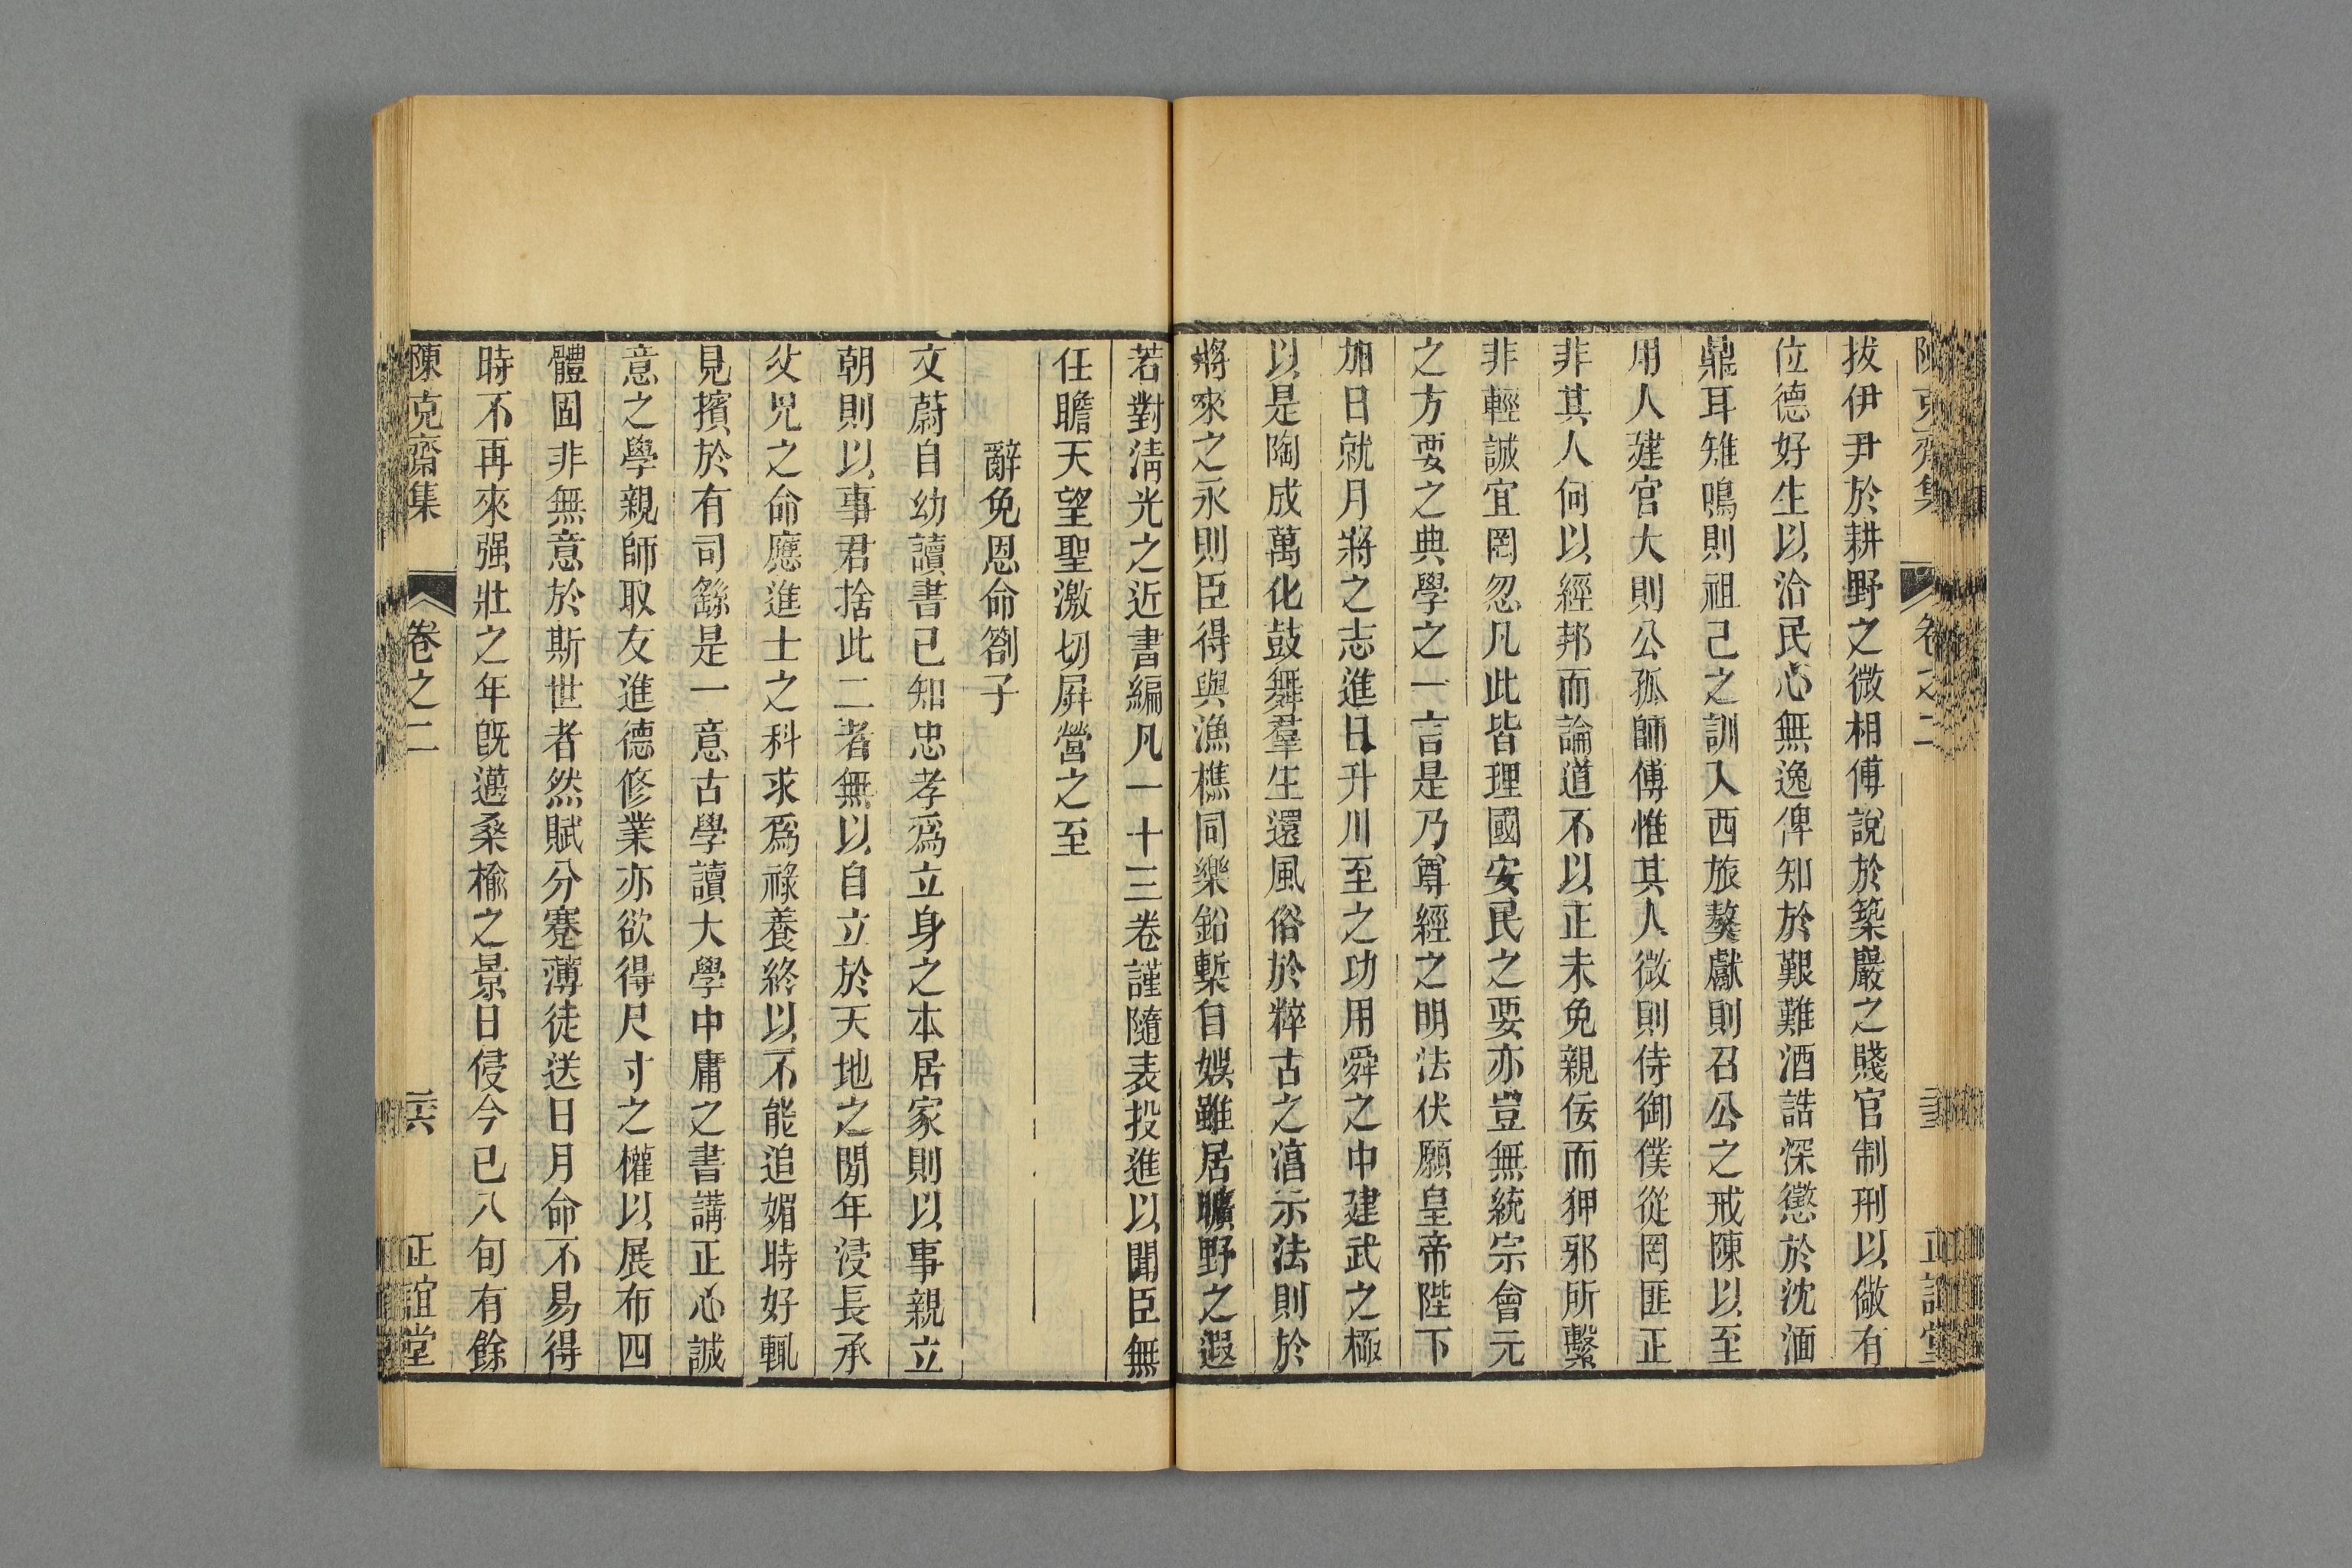 陳克齋集 卷之二 正誼堂
拔伊尹於耕野之微相傅說於築巖之賤官制刑以儆有
位德好生以洽民心無逸俾知於艱難酒誥深懲於沈湎
鼎耳雉鳴則祖己之訓入西旅獒獻則召公之戒陳以至
用人建官大則公孤師傅惟其人微則侍御僕從罔匪正
非其人何以經邦而論道不以正未免親佞而狎邪所繫
非輕誠宜罔忽凡此皆理國安民之要亦豈無統宗會元
之方要之典學之一言是乃尊經之明法伏願皇帝陛下
加日就月將之志進日升川至之功用舜之中建武之極
以是陶成萬化鼓舞羣生還風俗於粹古之湻示法則於
將來之永則臣得與漁樵同樂鉛槧自娛雖居曠野之遐
若對清光之近書編凡一十三卷謹隨表投進以聞臣無
任瞻天望聖激切屏營之至
辭免恩命劄子
文蔚自幼讀書已知忠孝爲立身之本居家則以事親立
朝則以事君捨此二者無以自立於天地之閒年浸長承
父兄之命應進士之科求爲祿養終以不能追媚時好輒
見擯於有司繇是一意古學讀大學中庸之書講正心誠
意之學親師取友進德修業亦欲得尺寸之權以展布四
體固非無意於斯世者然賦分蹇薄徒送日月命不易得
時不再來强壯之年旣邁桑榆之景日侵今已八旬有餘
陳克齋集 卷之二 二六 正誼堂